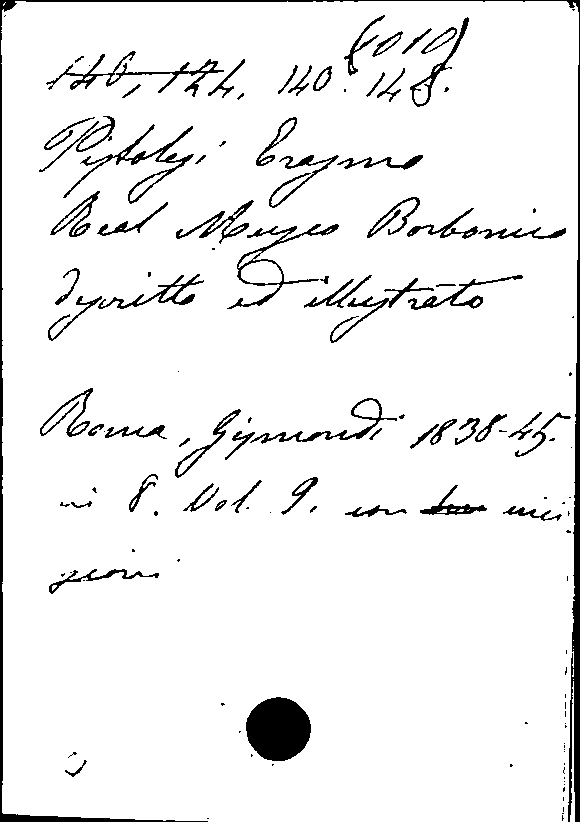 (8010)
140, 124, 140. 148.
Pistolesi Erasmo
Real Museo Borbonico
descritto ed illustrato
Roma, Gismondi 1838-45.
in 8. Vol. 9. con inci
sioni